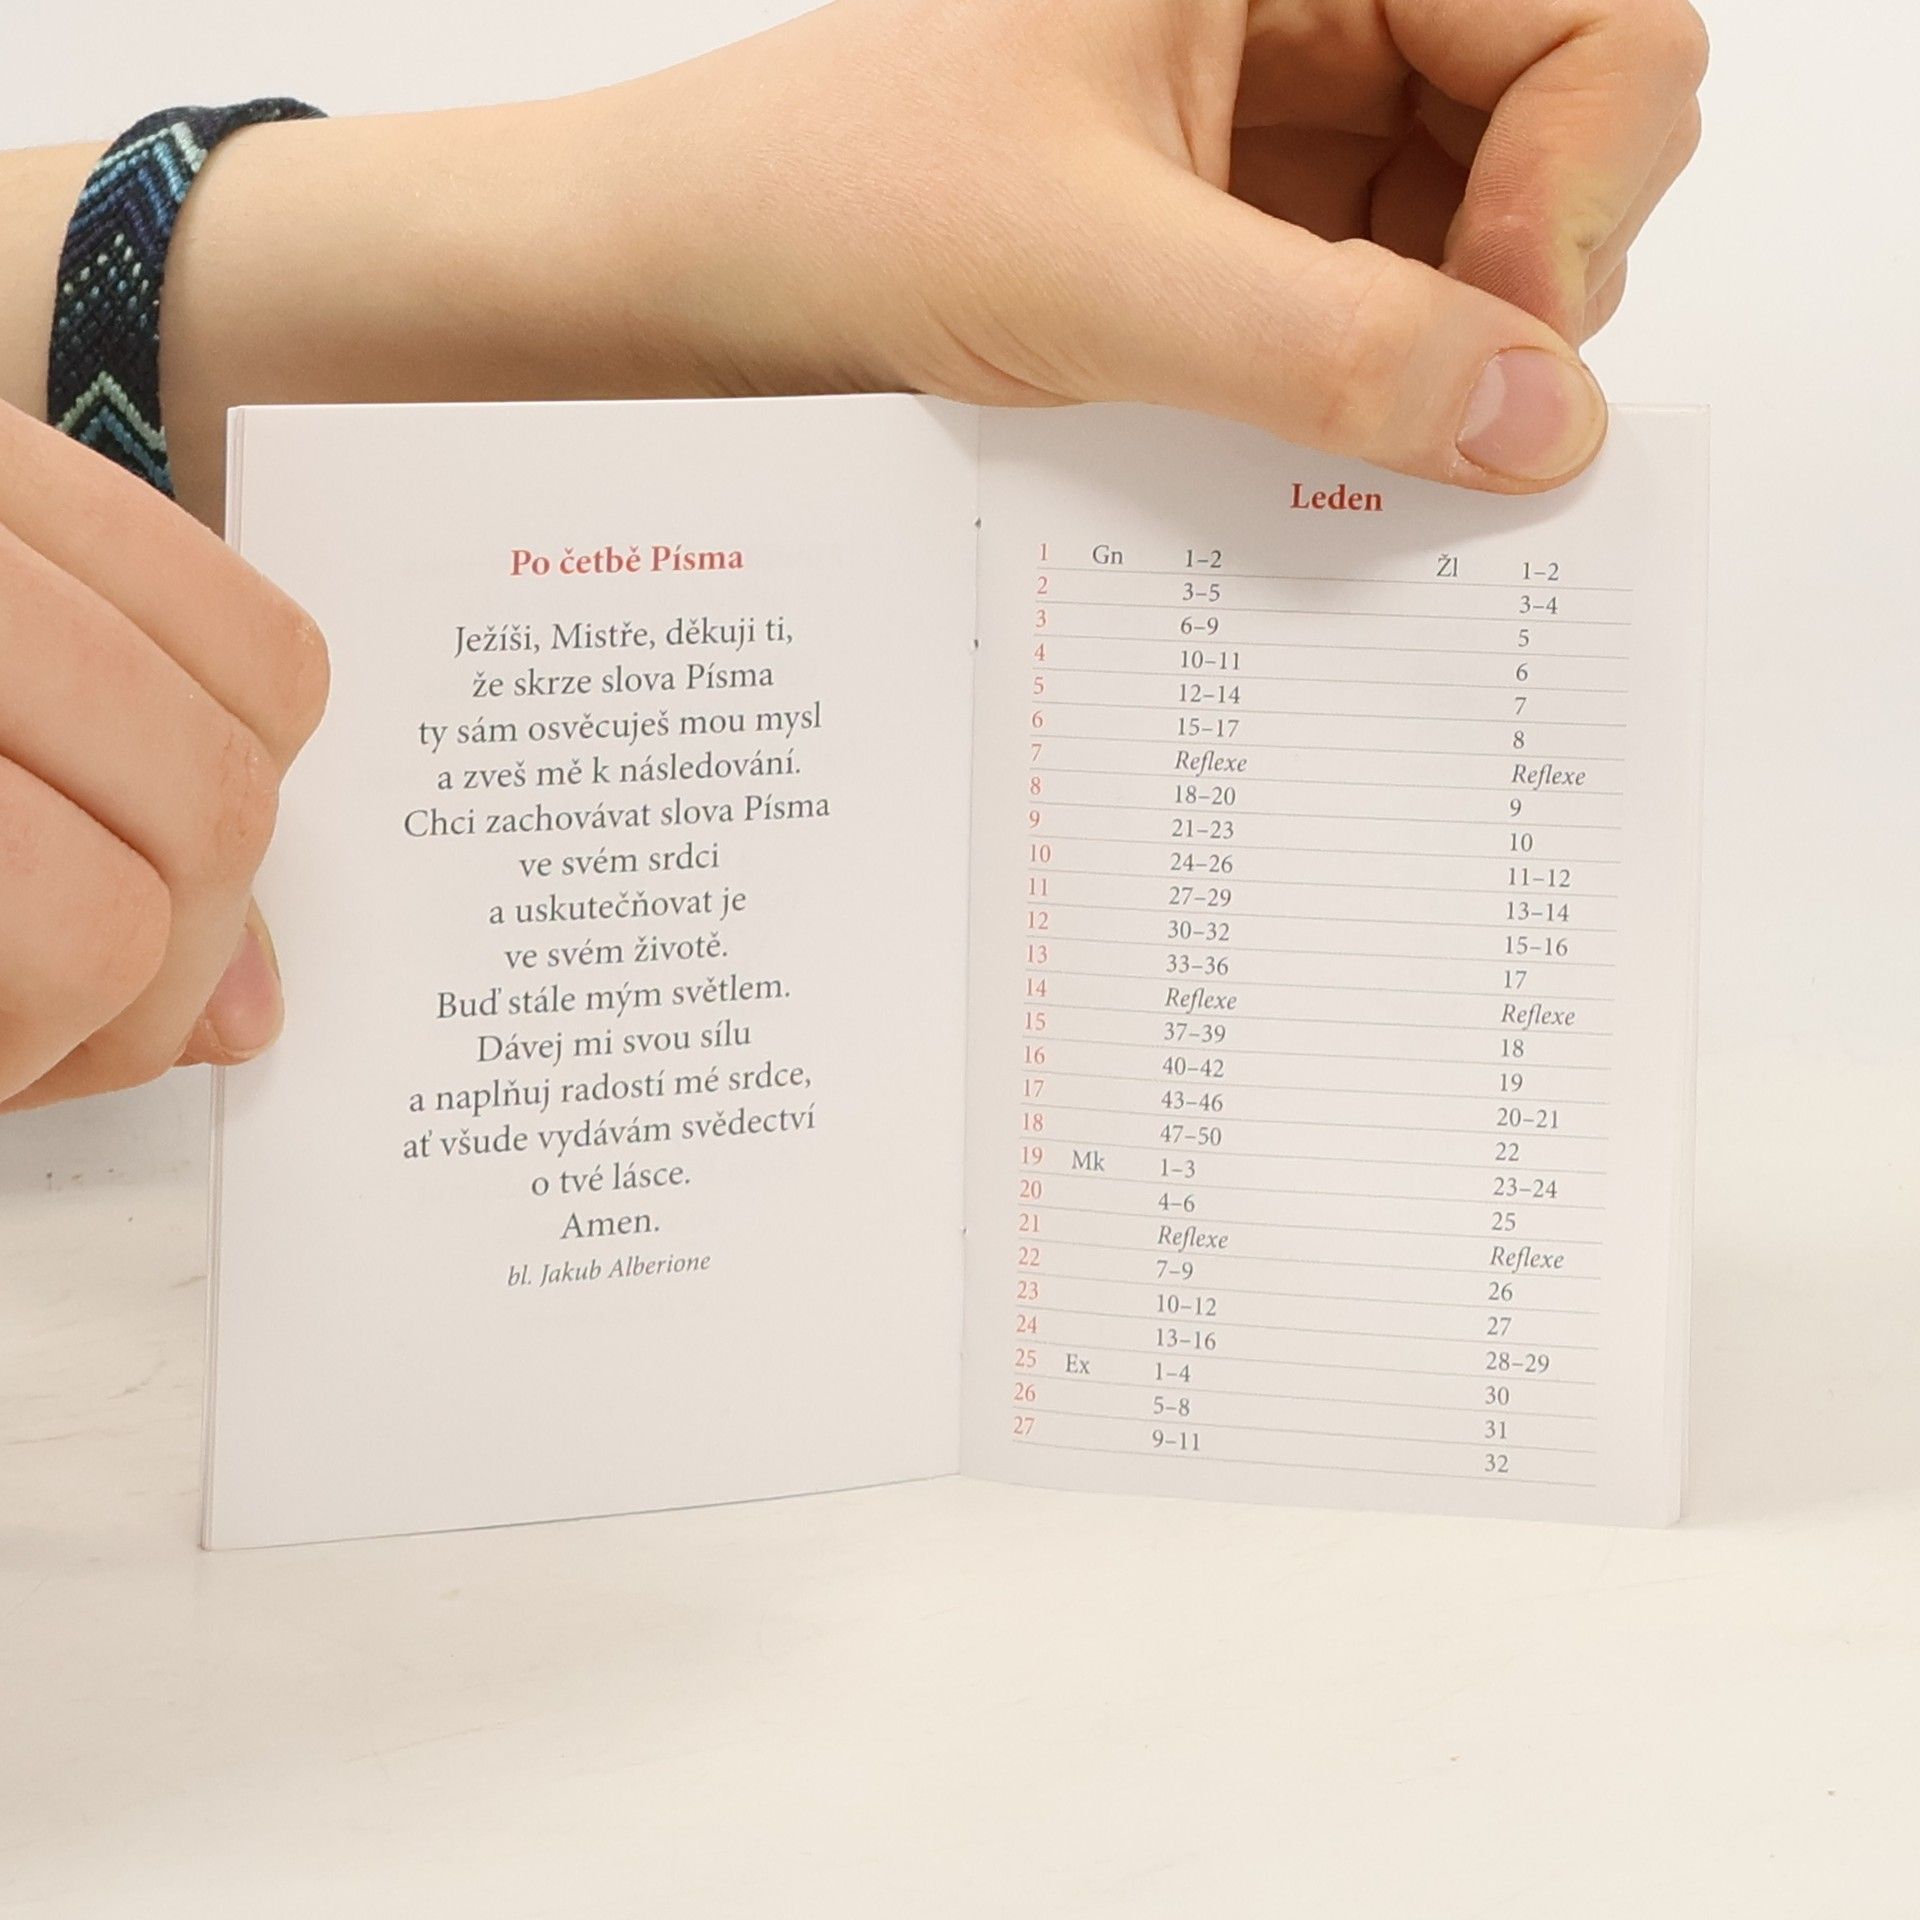 Po četbě Písma
Ježíši, Mistře, děkuji ti,
že skrze slova Písma
ty sám osvěcuješ mou mysl
a zveš mě k následování.
Chci zachovávat slova Písma
ve svém srdci
a uskutečňovat je
ve svém životě.
Buď stále mým světlem.
Dávej mi svou sílu
a naplňuj radostí mé srdce,
ať všude vydávám svědectví
o tvé lásce.
Amen.
bl. Jakub Alberione
Leden
1 Gn 1–2 Žl 1–2
2 3–5 3–4
3 6–9 5
4 10–11 6
5 12–14 7
6 15–17 8
7 Reflexe Reflexe
8 18–20 9
9 21–23 10
10 24–26 11–12
11 27–29 13–14
12 30–32 15–16
13 33–36 17
14 Reflexe Reflexe
15 37–39 18
16 40–42 19
17 43–46 20–21
18 47–50 22
19 Mk 1–3 23–24
20 4–6 25
21 Reflexe Reflexe
22 7–9 26
23 10–12 27
24 13–16 28–29
25 Ex 1–4 30
26 5–8 31
27 9–11 32